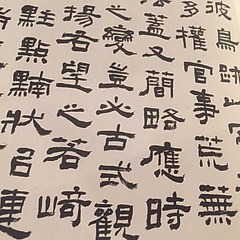 彼鳥跡
多權官事荒蕪
法蓋又簡略應時
之變豈必古式觀
揚右望之若崎
點狀連